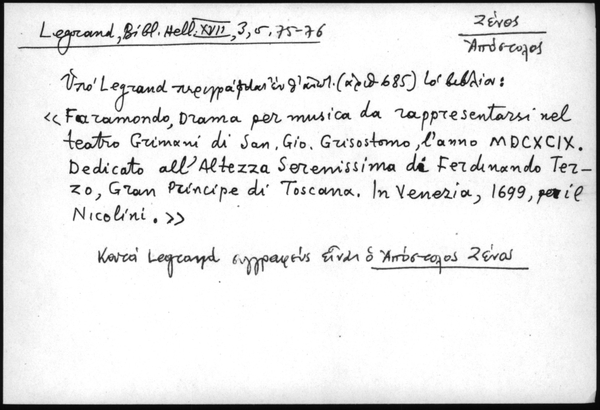 Legrand, Bibl. Hell. XVII, 3, σ. 75-76
Ζένος
Ἀπόστολος
Ὑπό Legrand περιγράφεται ἐνθ' ἀνωτ. (ἀριθ 685) τό βιβλίον:
«Faramondo, Drama per musica da rappresentarsi nel
teatro Grimani di San. Gio. Grisostomo, l'anno MDCXCIX.
Dedicato all'Altezza Serenissima di Ferdinando Ter-
zo, Gran Principe di Toscana. In Venezia, 1699, per il
Nicolini.»
Κατά Legrand συγγραφεύς εἶναι ὁ Ἀπόστολος Ζένος